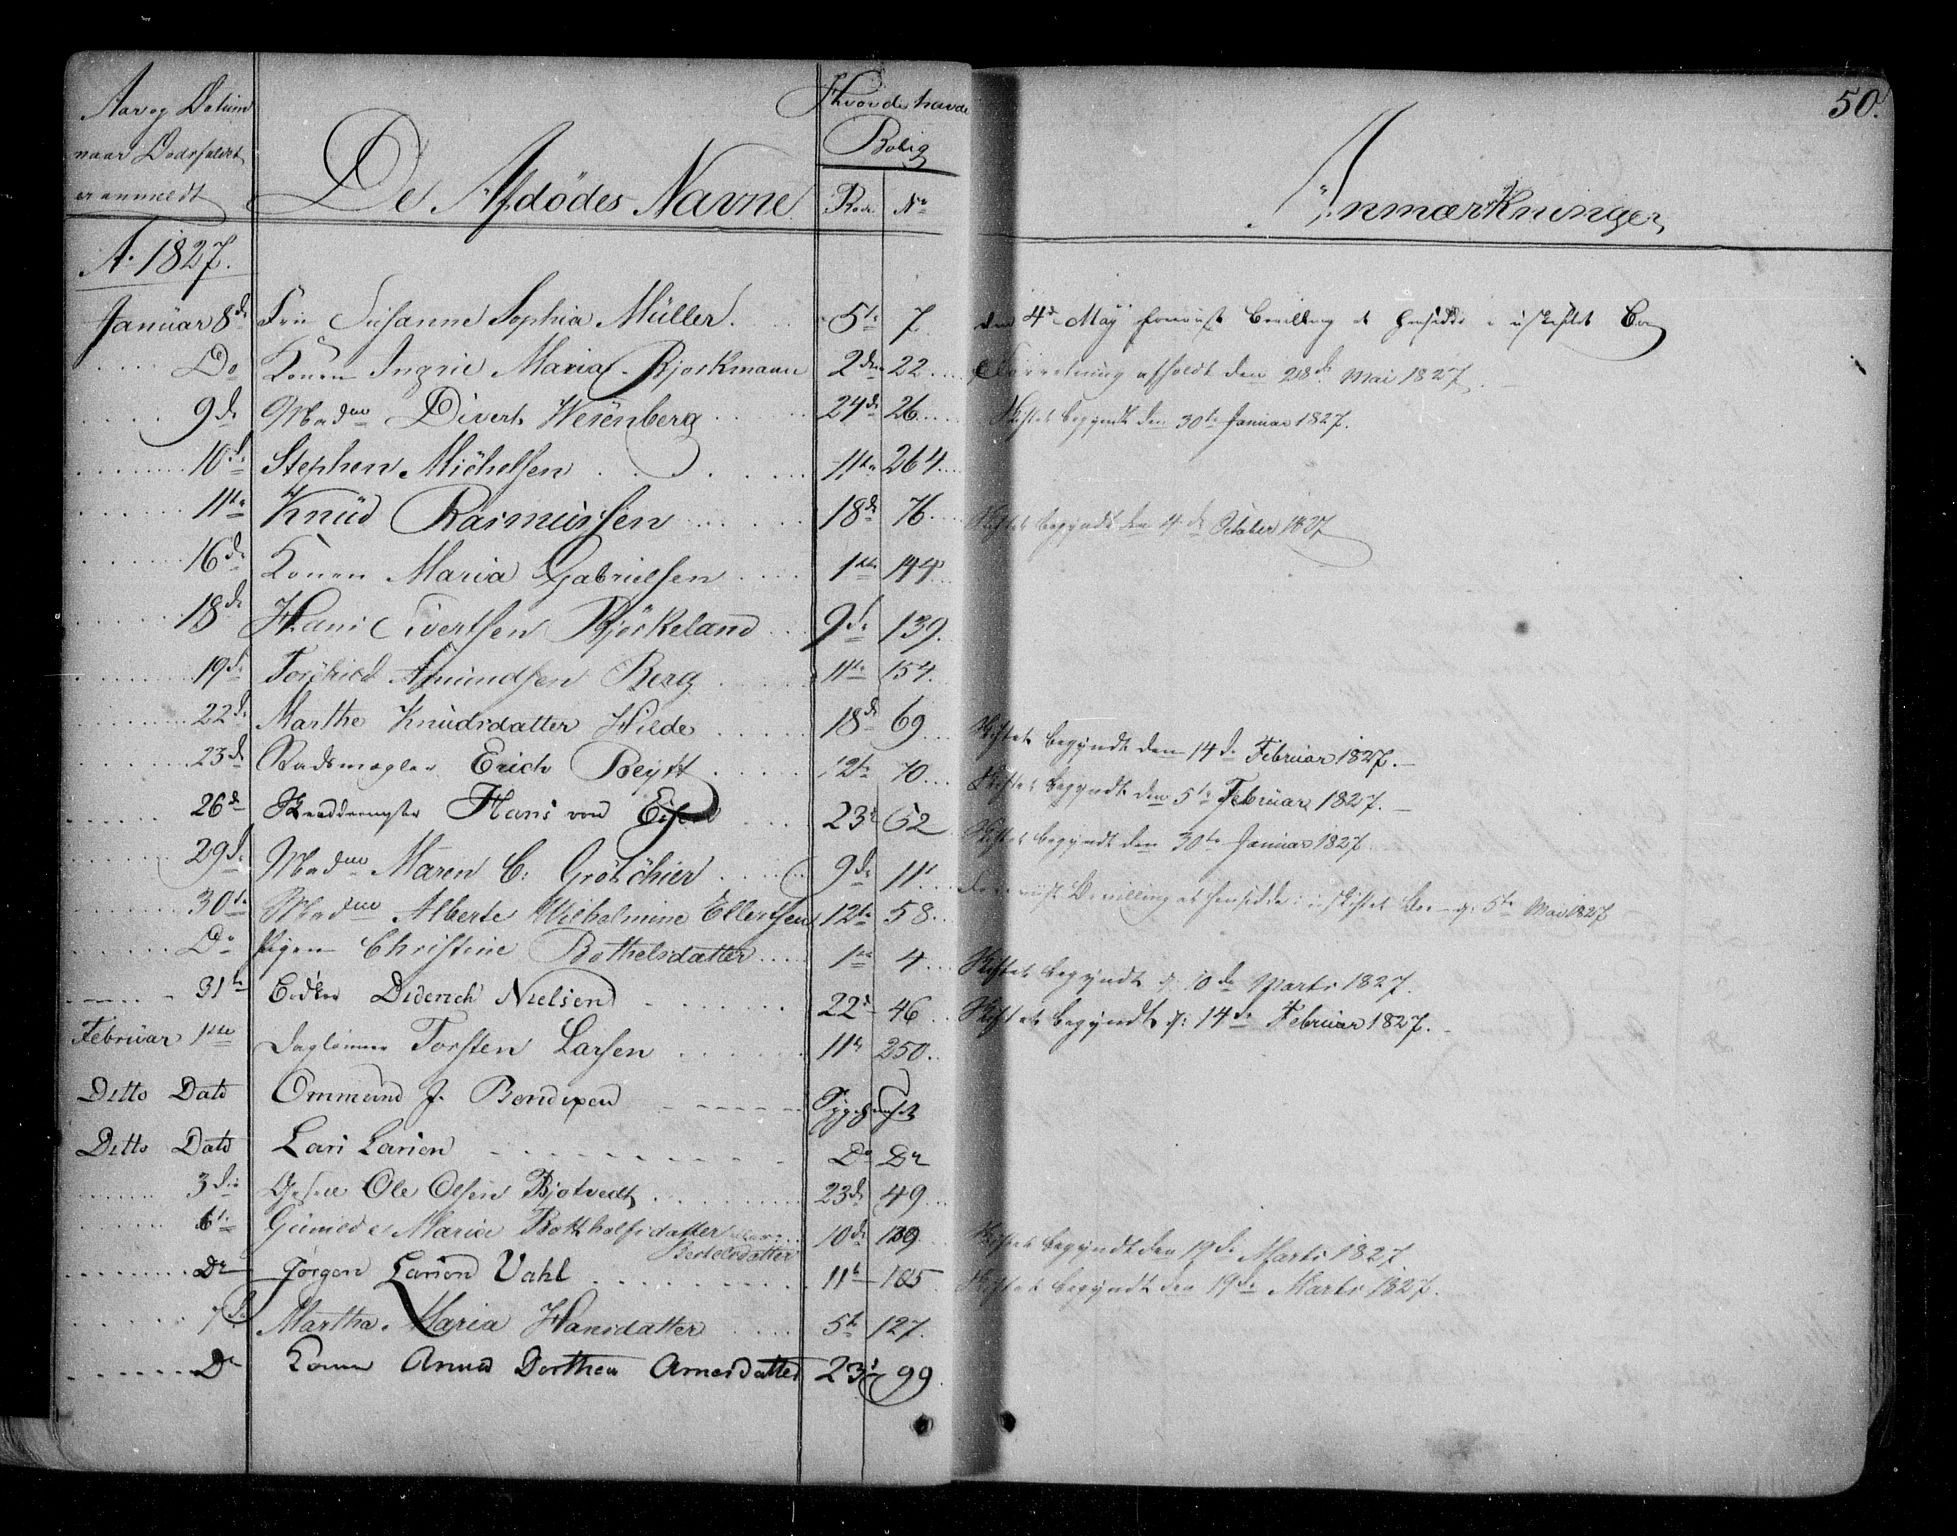 50.
Aar og Datum
naar Dødsfaldet
er anmeldt
De Afdødes Navne
Hvor de havde
Bolig
Rode No
Anmærkninger
Ao 1827.
Januar 8de Fru Susanne Sophia Müller. 5te 7 den 4de May Bevilling at hensidde i uskiftet Boe
Do Konen Ingrie Maria Bjorkmann 2den 22 Forretning afholdt den 28de Mai 1827.
9de Madme Divert Wesenberg 24de 26 Skiftet begyndt den 30te Januar 1827.
10de Stephen Michelsen 11te 264
11te Knud Rasmussen 18de 76 Skiftet begyndt den 4de October 1827
16de Konen Maria Gabrielsen 1ste 144
18de Hans Sivertsen Bjørkeland 9de 139.
19de Amundsen Berg 11te 154
22de Marthe Knudsdatter Hilde 18de 69 Skiftet begyndt den 14de Februar 1827.
23de Erich Beyff 12te 70 Skiftet begyndt den 5te Februar 1827.
26de Hans von 23de 52 Skiftet begyndt den 30te Januar 1827
29de Madme Maren C: Grötchier 9de 11 Bevilling at hensidde i uskiftet Boe d: 5te Mai 1827
30te Madme Alberte Wilhelmine Ellertsen 12te 58
Do Pigen Christine Bothelsdatter 1ste 4 Skiftet begyndt d: 10de Marts 1827.
31te Diderich Nielsen 22de 46 Skiftet begyndt d: 14de Februar 1827.
Februar 1ste Daglønner Torsten Larsen 11te 250
Ditto Dato Ommund J. Bendixen Sygehuset
Ditto Dato Lars Larsen Do Do
3die Ole Olsen Bjotvedt 23de 49
6te Gunilde Marie Botholfsdatter 10de 139 Skiftet begyndt den 19de Marts 1827.
Bertelsdatter
Do Jørgen Larsen Vahl 11te 105 Skiftet begyndt den 19de Marts 1827.
7de Martha Maria Hansdatter 5te 127.
Do Konen Anna Dorthea Arnesdatter 23de 99